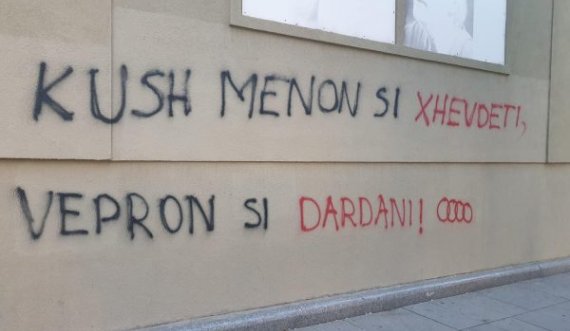 KUSH MENON SI XHEVDETI,
VEPRON SI DARDANI!